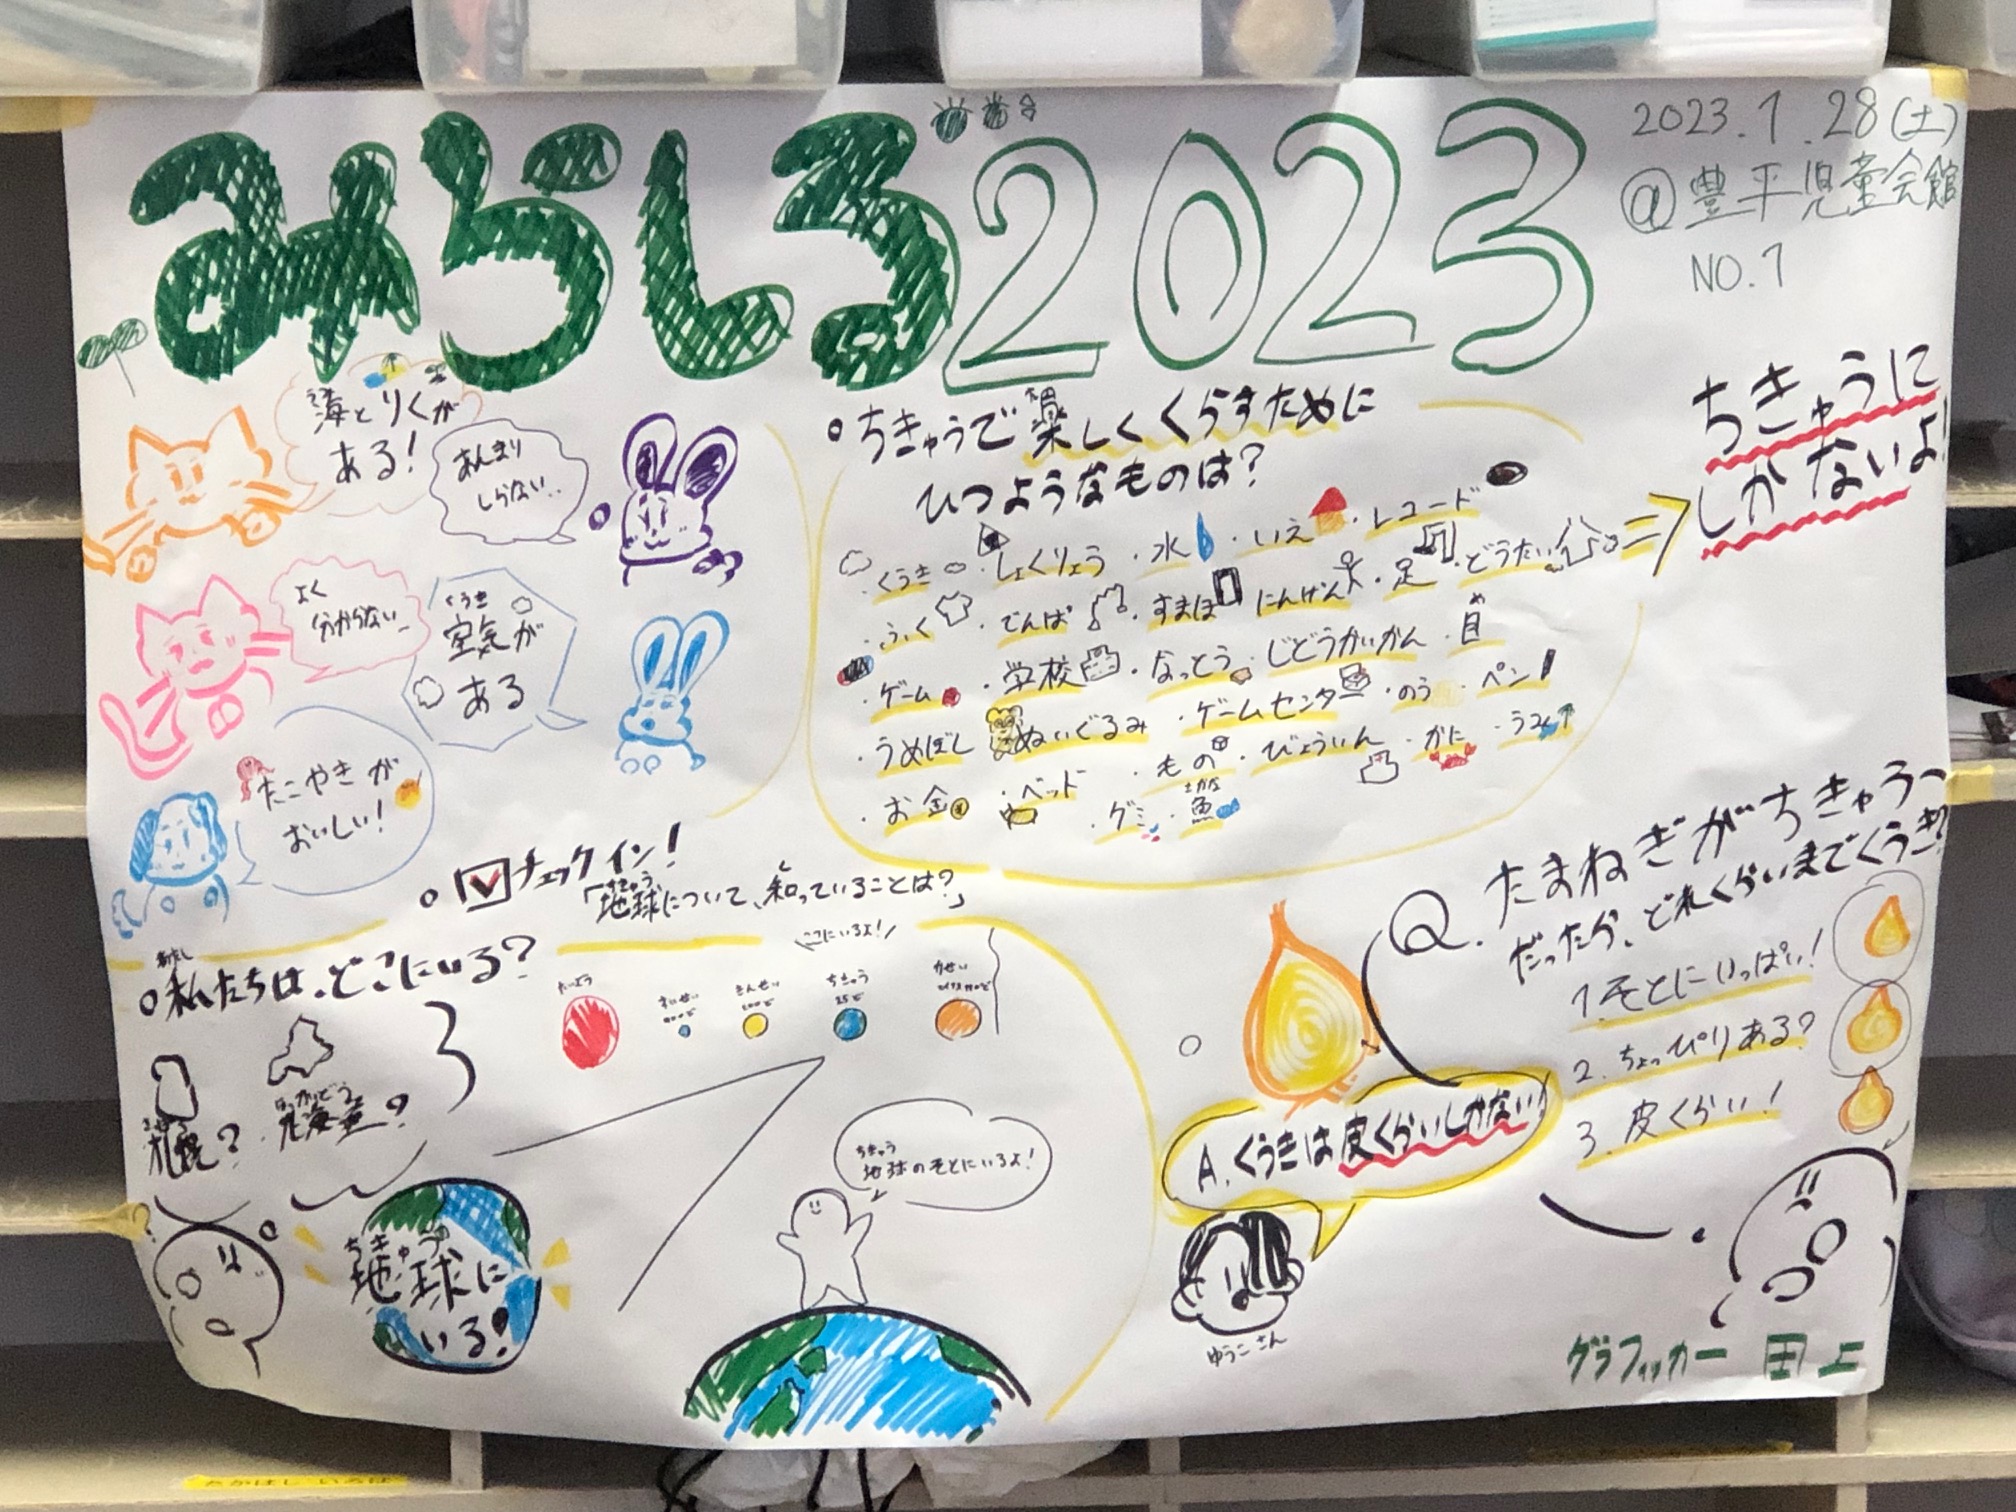 みらしる2023
2023.1.28(土)
@豊平児童会館
NO.1
海とりくが
ある!
あんまり
しらない..
よく
分からない
くうき
空気が
ある
たこやきが
おいしい!
チェックイン!
ちきゅう
「地球について、知っていることは?」
ちきゅうで楽しくくらすために
ひつようなものは?
・くうき ・しょくりょう ・水 ・いえ ・レコード
・ふく ・でんぱ ・すまほ ・にんげん ・足 ・どうたい
・ゲーム ・学校 ・なっとう ・じどうかいかん ・目
・うめぼし ・ぬいぐるみ ・ゲームセンター ・のう ・ペン
・お金 ・ベッド ・もの ・びょういん ・かに ・うみ
・グミ ・魚
さかな
ちきゅうに
しかないよ!
わたし
私たちは、どこにいる?
札幌?
ほっかいどう
北海道?
ちきゅう
地球に
いる!
ここにいるよ!
たいよう
すいせい
きんせい
ちきゅう
25ど
かせい
ちきゅう
地球のそとにいるよ!
Q.たまねぎがちきゅう
だったら、どれくらいまでくうき?
1.そとにいっぱい!
2.ちょっぴりある?
3.皮くらい!
A.くうきは皮くらいしかない!
ゆうこさん
グラフィッカー 田上
たかはし いろは